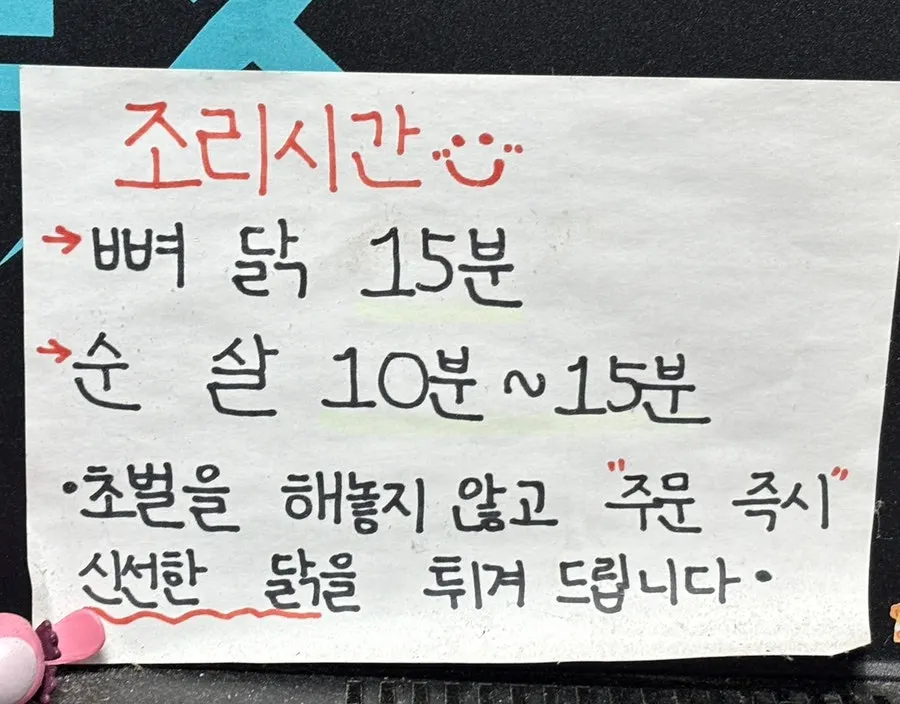 조리시간
→뼈 닭 15분
→순 살 10분~15분
·초벌을 해놓지 않고 "주문 즉시"
신선한 닭을 튀겨 드립니다·